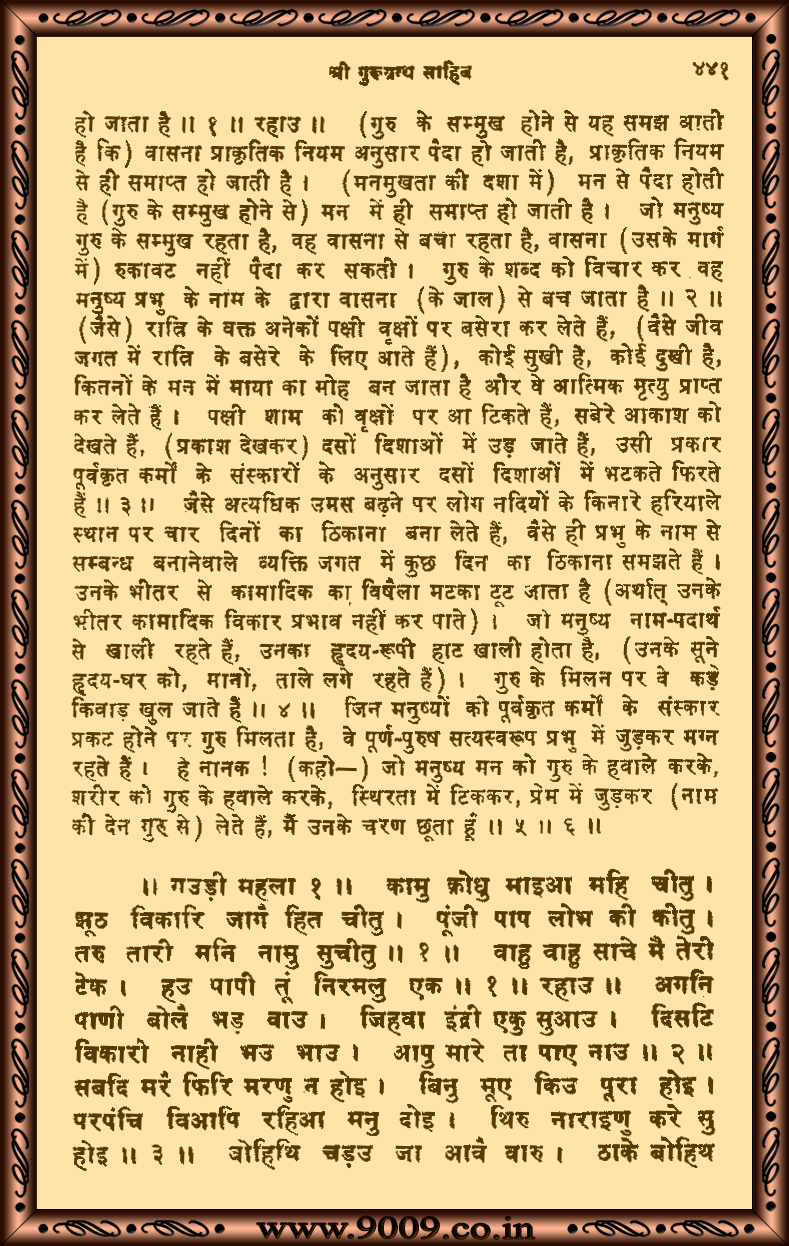 श्री गुरुग्रन्थ साहिब ४४१
हो जाता है ॥ १ ॥ रहाउ ॥ (गुरु के सम्मुख होने से यह समझ आती
है कि) वासना प्राकृतिक नियम अनुसार पैदा हो जाती है, प्राकृतिक नियम
से ही समाप्त हो जाती है । (मनमुखता की दशा में) मन से पैदा होती
है (गुरु के सम्मुख होने से) मन में ही समाप्त हो जाती है । जो मनुष्य
गुरु के सम्मुख रहता है, वह वासना से बचा रहता है, वासना (उसके मार्ग
में) रुकावट नहीं पैदा कर सकती । गुरु के शब्द को विचार कर वह
मनुष्य प्रभु के नाम के द्वारा वासना (के जाल) से बच जाता है ॥ २ ॥
(जैसे) रात्रि के वक्त अनेकों पक्षी वृक्षों पर बसेरा कर लेते हैं, (वैसे जीव
जगत में रात्रि के बसेरे के लिए आते हैं), कोई सुखी है, कोई दुखी है,
कितनों के मन में माया का मोह बन जाता है और वे आत्मिक मृत्यु प्राप्त
कर लेते हैं । पक्षी शाम को वृक्षों पर आ टिकते हैं, सबेरे आकाश को
देखते हैं, (प्रकाश देखकर) दसों दिशाओं में उड़ जाते हैं, उसी प्रकार
पूर्वकृत कर्मों के संस्कारों के अनुसार दसों दिशाओं में भटकते फिरते
हैं ॥ ३ ॥ जैसे अत्यधिक उमस बढ़ने पर लोग नदियों के किनारे हरियाले
स्थान पर चार दिनों का ठिकाना बना लेते हैं, वैसे ही प्रभु के नाम से
सम्बन्ध बनानेवाले व्यक्ति जगत में कुछ दिन का ठिकाना समझते हैं ।
उनके भीतर से कामादिक का विषैला मटका टूट जाता है (अर्थात् उनके
भीतर कामादिक विकार प्रभाव नहीं कर पाते) । जो मनुष्य नाम-पदार्थ
से खाली रहते हैं, उनका हृदय-रूपी हाट खाली होता है, (उनके सूने
हृदय-घर को, मानों, ताले लगे रहते हैं) । गुरु के मिलन पर वे कड़े
किवाड़ खुल जाते हैं ॥ ४ ॥ जिन मनुष्यों को पूर्वकृत कर्मों के संस्कार
प्रकट होने पर गुरु मिलता है, वे पूर्ण-पुरुष सत्यस्वरूप प्रभु में जुड़कर मग्न
रहते हैं । हे नानक ! (कहो—) जो मनुष्य मन को गुरु के हवाले करके,
शरीर को गुरु के हवाले करके, स्थिरता में टिककर, प्रेम में जुड़कर (नाम
की देन गुरु से) लेते हैं, मैं उनके चरण छूता हूँ ॥ ५ ॥ ६ ॥
॥ गउड़ी महला १ ॥ कामु क्रोधु माइआ महि चीतु ।
झूठ विकारि जागै हित चीतु । पूंजी पाप लोभ की कीतु ।
तरु तारी मनि नामु सुचीतु ॥ १ ॥ वाहु वाहु साचे मै तेरी
टेक । हउ पापी तूं निरमलु एक ॥ १ ॥ रहाउ ॥ अगनि
पाणी बोलै भड़ वाउ । जिहवा इंद्री एकु सुआउ । दिसटि
विकारी नाही भउ भाउ । आपु मारे ता पाए नाउ ॥ २ ॥
सबदि मरै फिरि मरणु न होइ । बिनु मूए किउ पूरा होइ ।
परपंचि विआपि रहिआ मनु दोइ । थिरु नाराइणु करे सु
होइ ॥ ३ ॥ बोहिथि चड़उ जा आवै वारु । ठाके बोहिथ
www.9009.co.in